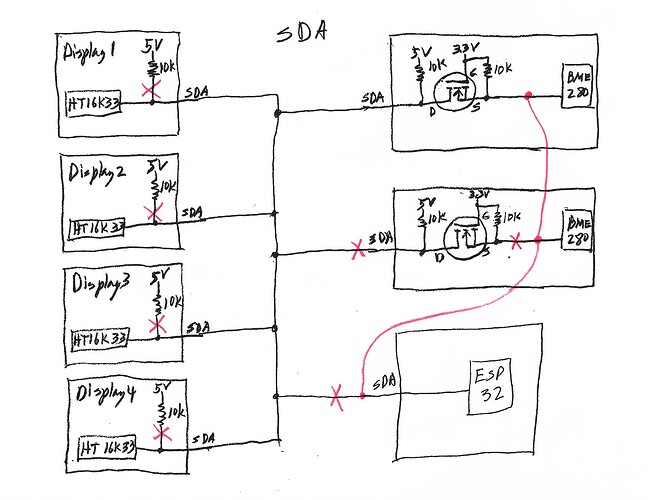 SDA
Display 1
5V
10K
HT16K33
SDA
Display 2
5V
10K
HT16K33
SDA
Display 3
5V
10K
HT16K33
SDA
Display 4
5V
10K
HT16K33
SDA
5V
10K
3.3V
10K
G
D
S
SDA
BME
280
5V
10K
3.3V
10K
G
D
S
SDA
BME
280
SDA
ESP
32